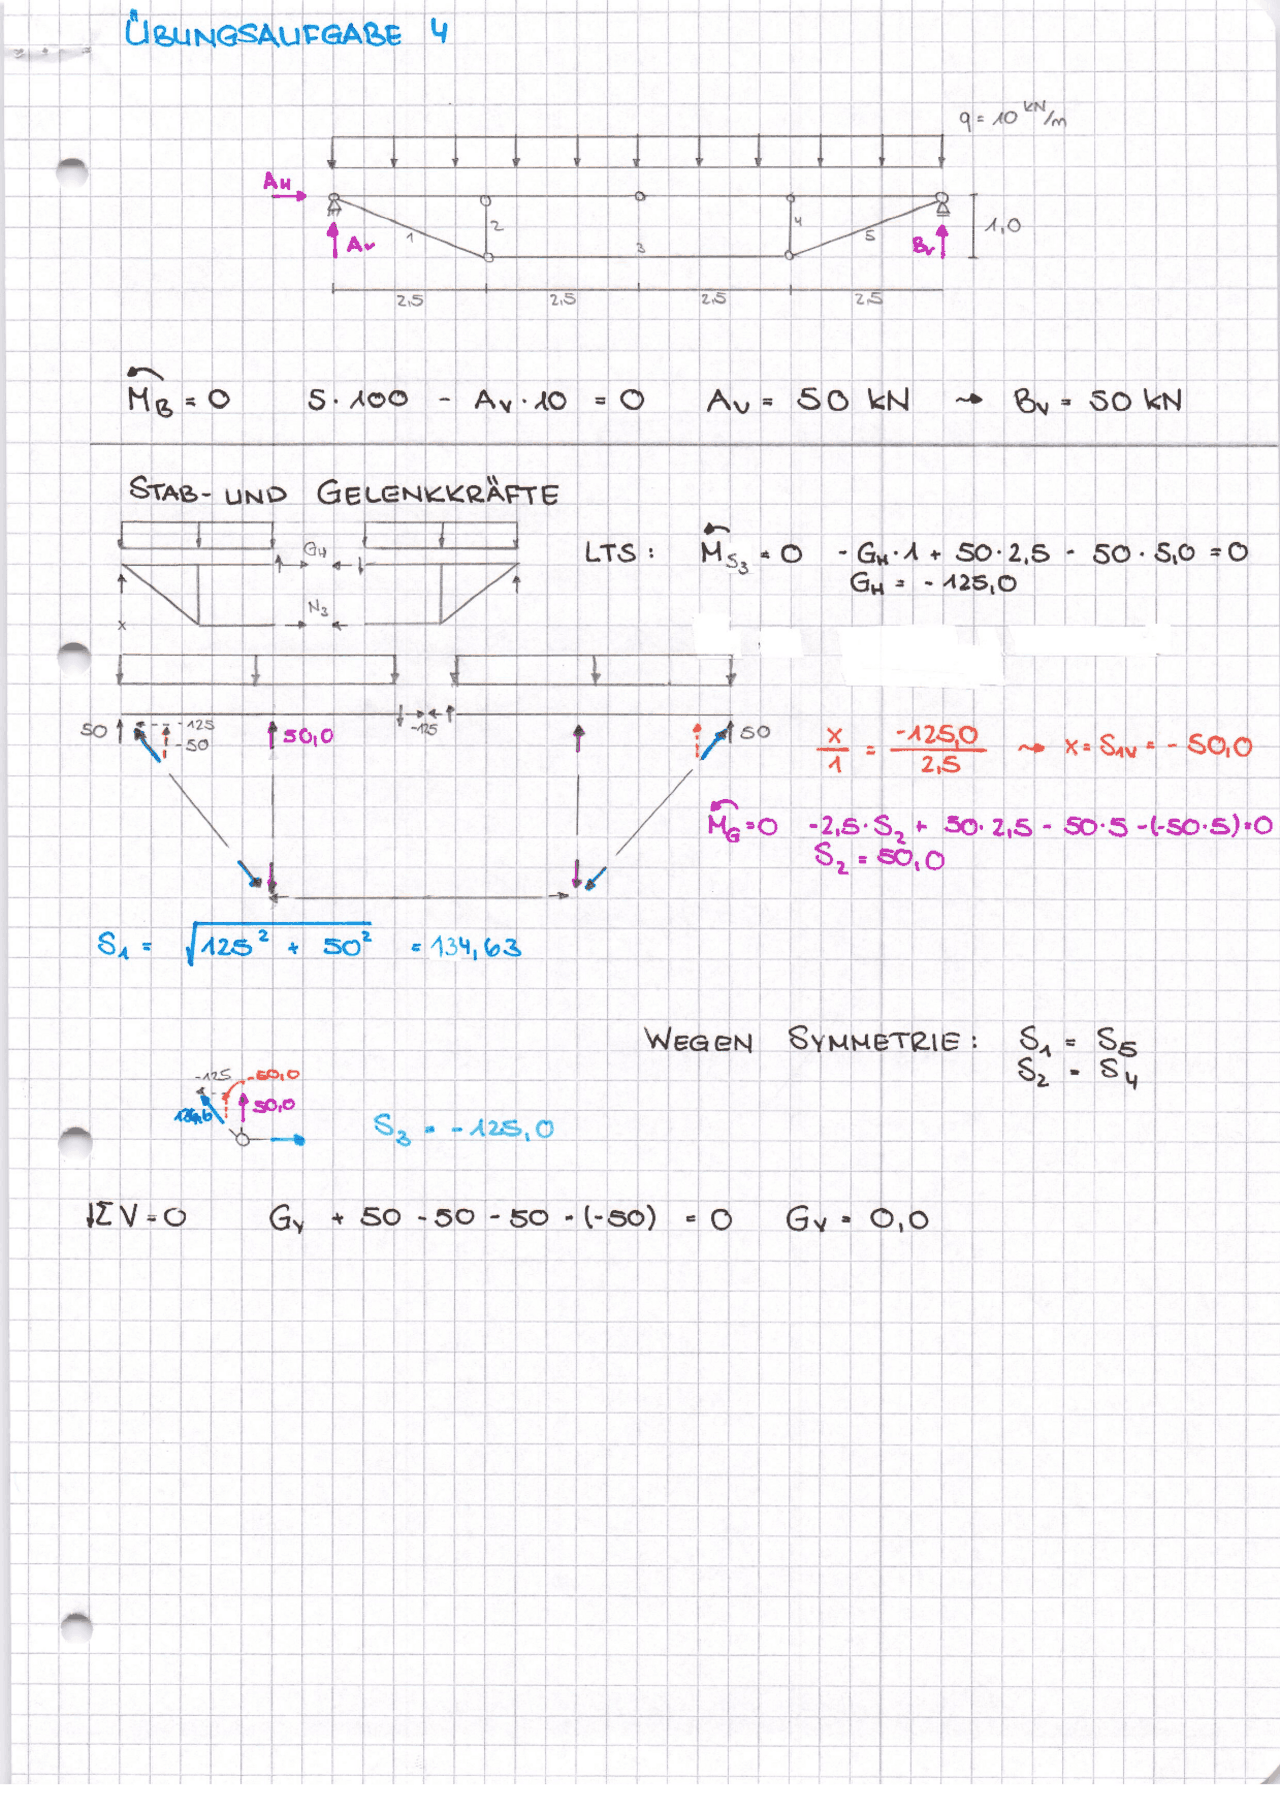 ÜBUNGSAUFGABE 4
q = 10 kN/m
AH
AV
1
2
3
4
5
BV
1,0
2,5 2,5 2,5 2,5
MB = 0 5·100 - AV·10 = 0 AV = 50 kN → BV = 50 kN
STAB- UND GELENKKRÄFTE
GH
N3
x
LTS: MS3 = 0 -GH·1 + 50·2,5 - 50·5,0 = 0
GH = -125,0
50 -125 -50 50,0 -125 50
x/1 = -125,0/2,5 → x = S1V = -50,0
MG = 0 -2,5·S2 + 50·2,5 - 50·5 - (-50·5) = 0
S2 = 50,0
S1 = √125² + 50² = 134,63
WEGEN SYMMETRIE: S1 = S5
S2 = S4
-125 -50,0
134,6 50,0
S3 = -125,0
↓ΣV = 0 GV + 50 - 50 - 50 - (-50) = 0 GV = 0,0